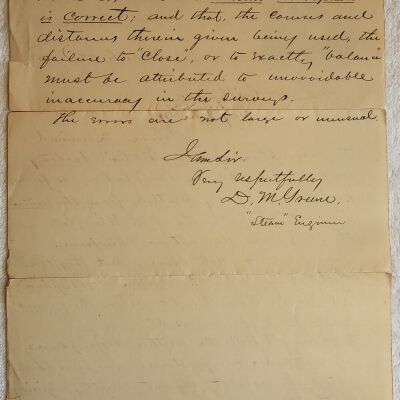 is correct; and that, the courses and
distances therein given being used, the
failure to "Close, or to exactly "balance"
must be attributed to unavoidable
inaccuracy in the surveys.
The errors are not large or unusual
I am Sir.
Very respectfully
D. M. Greene,
"Steam" Engineer